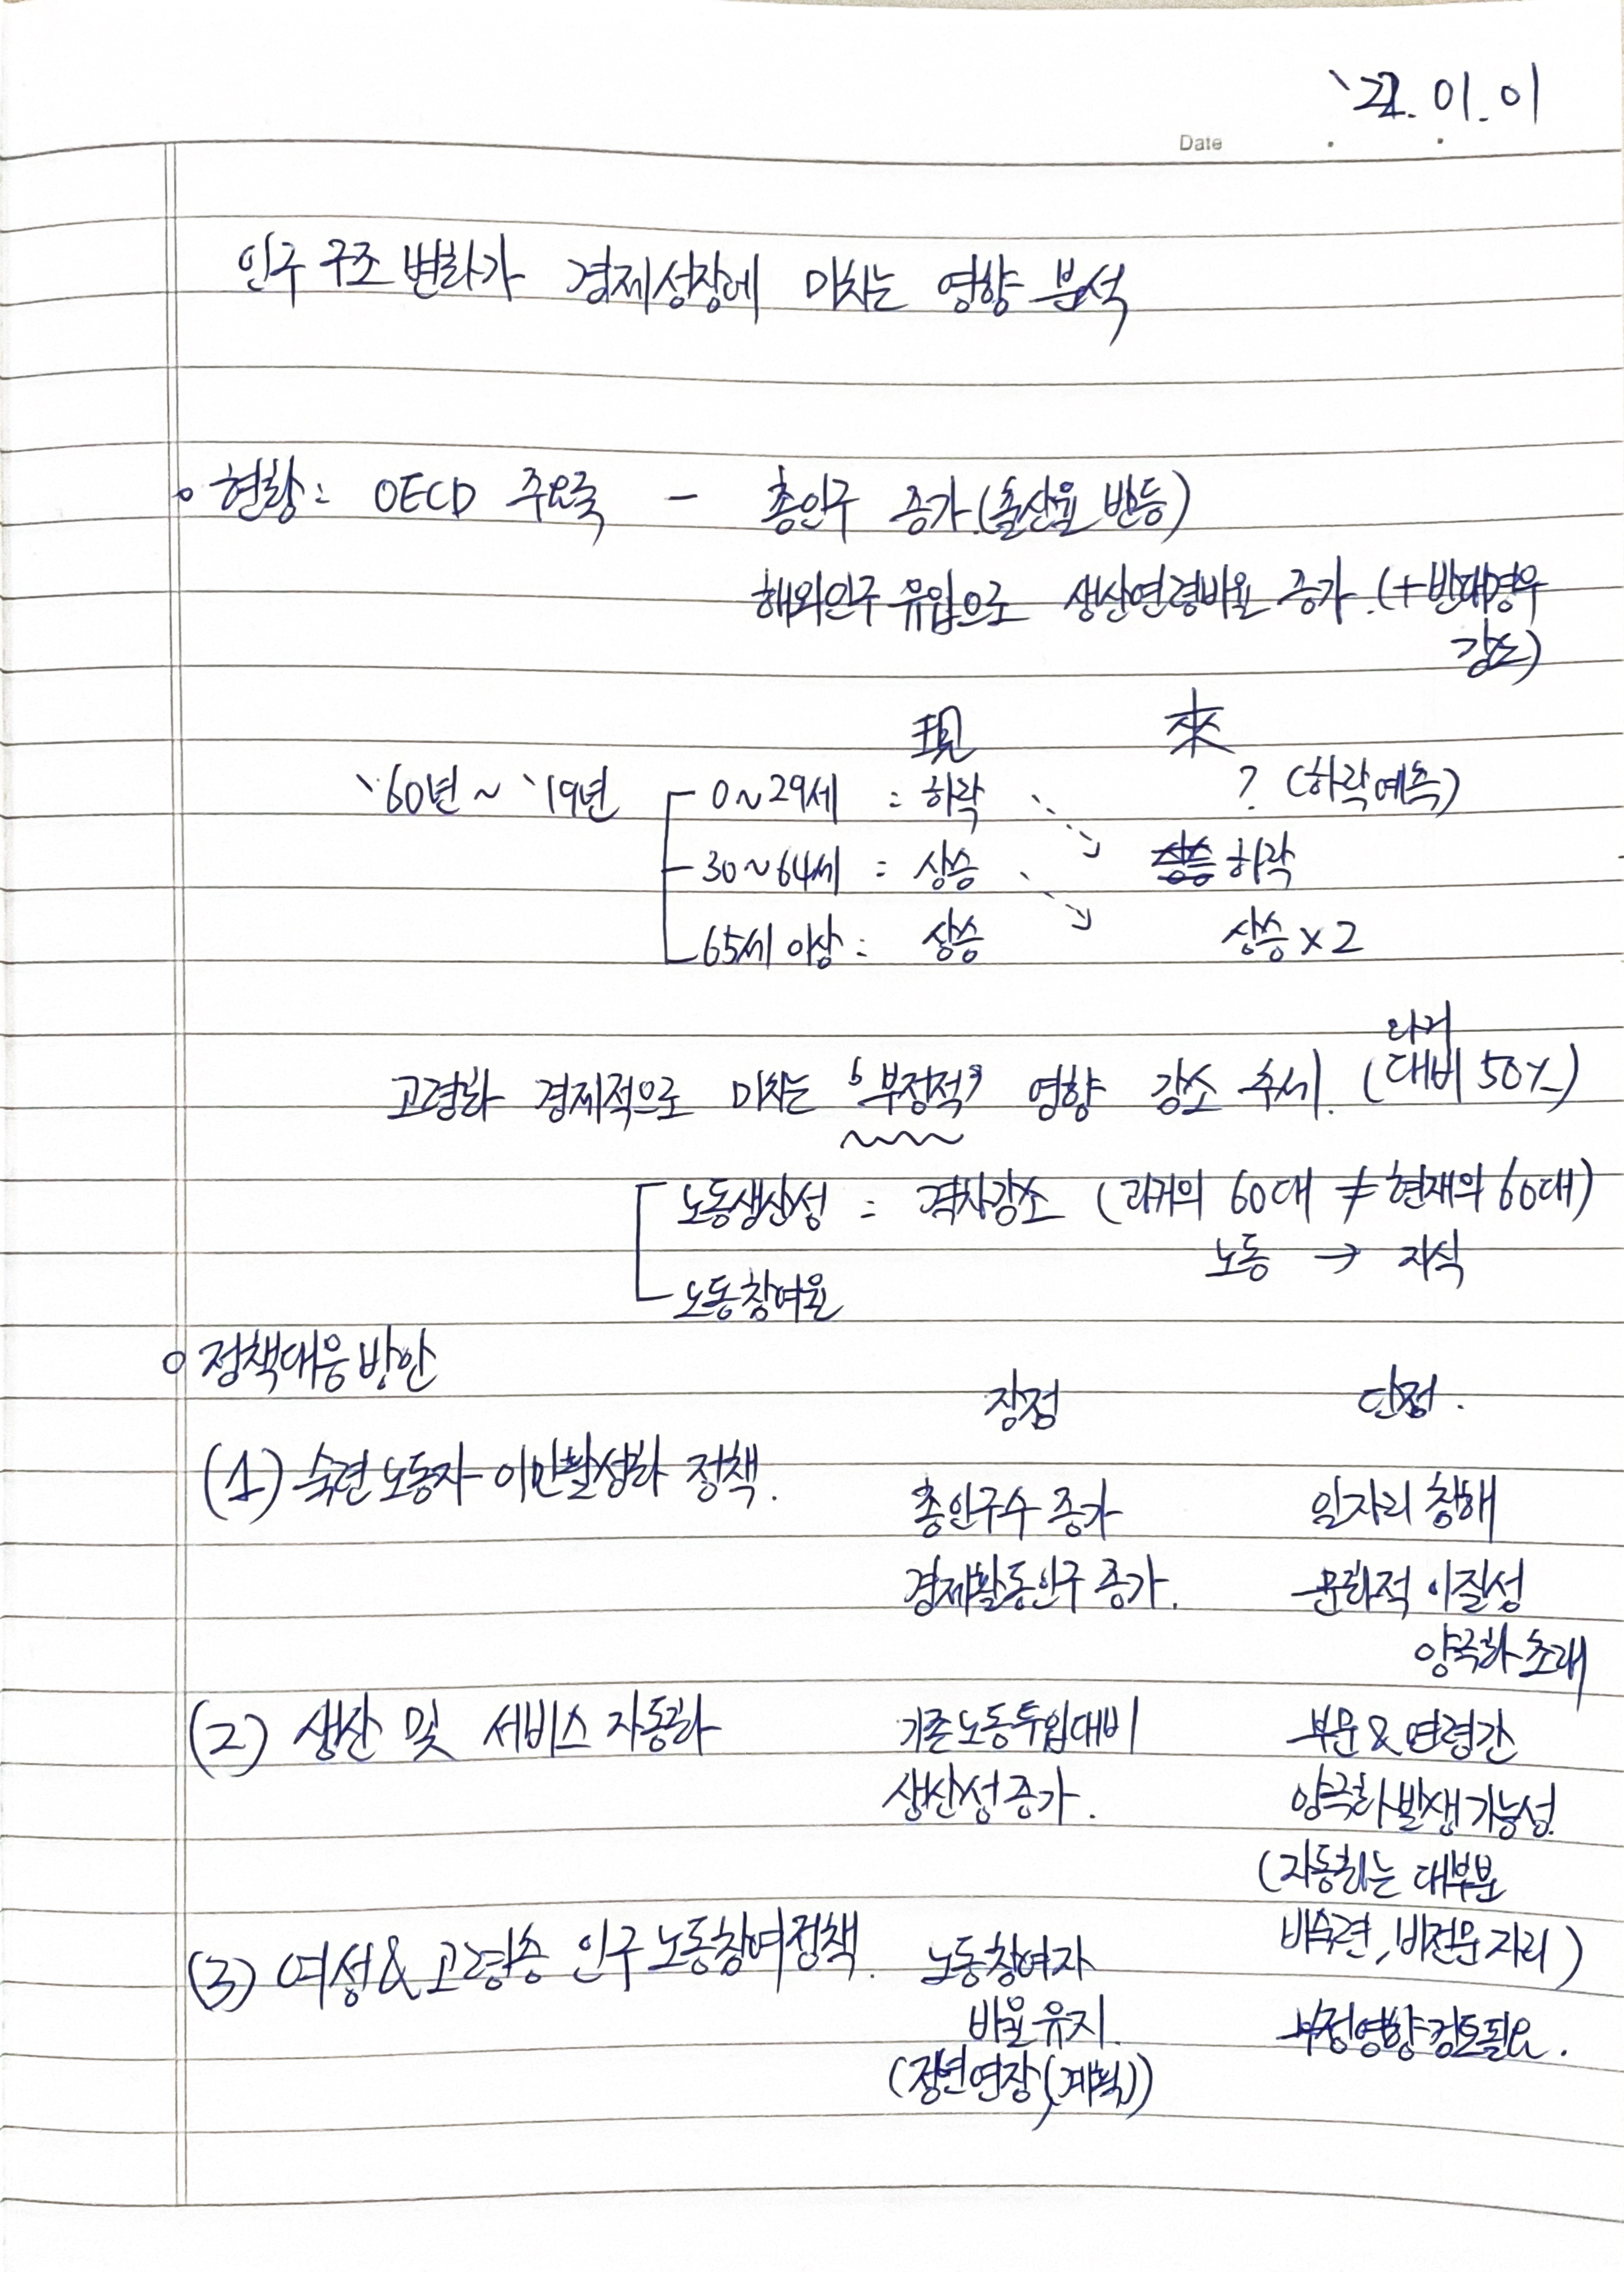 '22. 01. 01
Date . .
인구 구조 변화가 경제성장에 미치는 영향 분석
○ 현황 : OECD 주요국 - 총인구 증가 (출산율 반등)
해외인구 유입으로 생산연령비율 증가. (+ 반대경우
감소)
現 來
'60년 ~ '19년 0~29세 : 하락 ? (하락예측)
30~64세 : 상승 하락
65세 이상 : 상승 상승 x 2
과거
고령화 경제적으로 미치는 '부정적' 영향 감소 추세. (대비 50%)
노동생산성 = 격차감소 (과거의 60대 ≠ 현재의 60대)
노동 → 지식
노동참여율
○ 정책대응방안
장점 단점.
(1) 숙련 노동자 이민활성화 정책.
총인구수 증가 일자리 창해
경제활동인구 증가. 문화적 이질성
양극화 초래
(2) 생산 및 서비스 자동화 기존노동투입대비 부문 & 연령간
생산성 증가. 양극화 발생가능성.
(자동화는 대부분
(3) 여성 & 고령층 인구 노동참여정책. 노동참여자 비숙련, 비전문 자리)
비율 유지. 부정영향 검토필요.
(정년연장(계획))